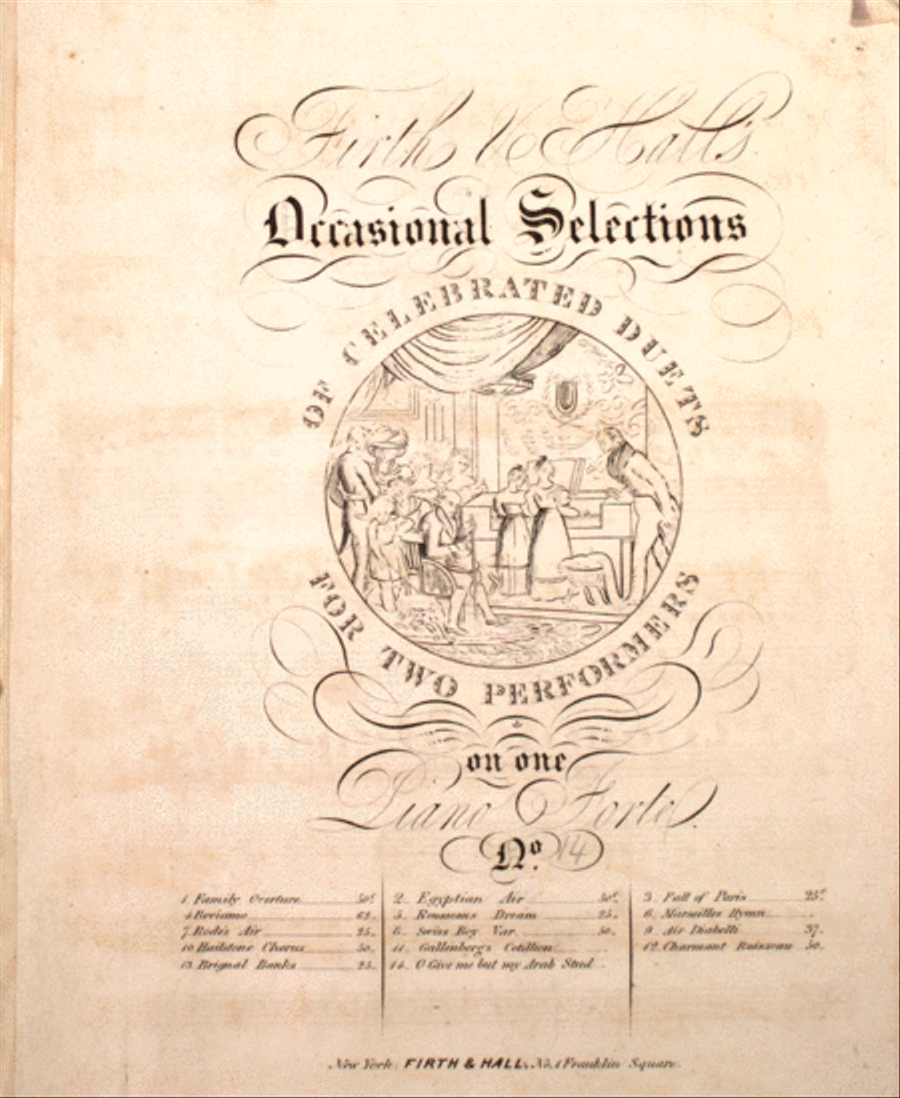 Firth & Hall's
Occasional Selections
OF CELEBRATED DUETS
FOR TWO PERFORMERS
on one
Piano Forte.
No. 14
1. Family Overture 50c. 2. Egyptian Air 50c. 3. Fall of Paris 25c.
4. Beviamo 62. 5. Rousseaus Dream 25. 6. Marseilles Hymn
7. Rode's Air 25. 8. Swiss Boy Var. 50. 9. Air Diabelli 37.
10 Hailstone Chorus 50. 11. Gallenberg's Cotillion 12. Charmant Ruisseau 50.
13. Brignal Banks 25. 14. O Give me but my Arab Steed
New York. FIRTH & HALL, No. 1 Franklin Square.